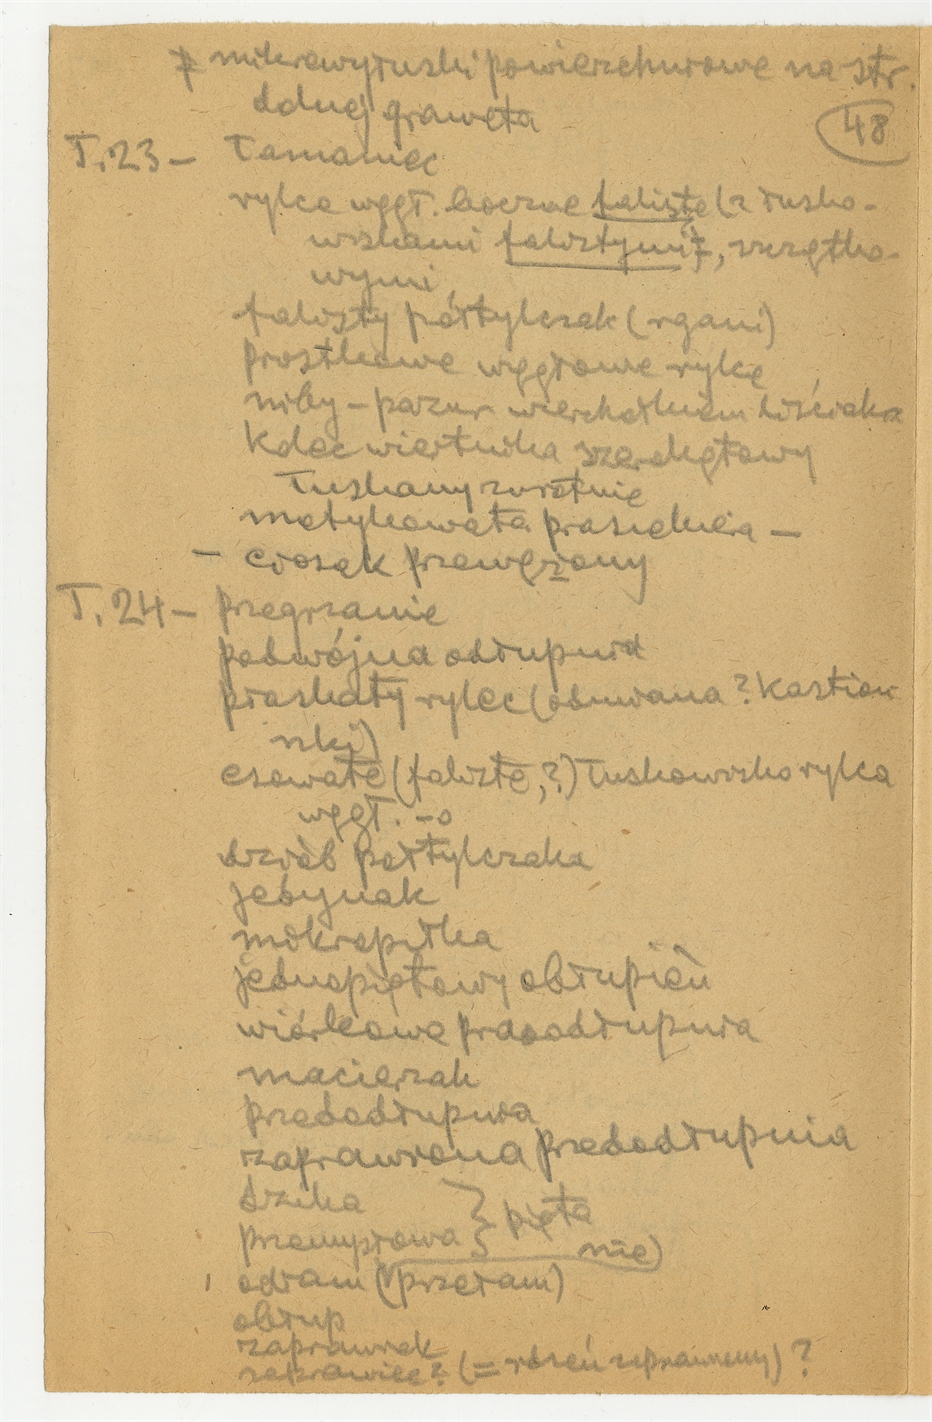 mikrowyłuski powierzchniowe na str.
dolnej graweta
48
T.23 — łamaniec
rylce węgł. boczne faliste (z łusko-
wiskami falistymi?), szczątko-
wymi
falisty półtylczak (
prostkowe węgłowe rylce
niby-pazur wierzchołkiem liściaka
kolec wiertnika szerokątowy
łuskany zwrotnie
motykowata prasiekiera —
— ciosak przewężony
T.24 — przegrzanie
podwójna odłupnia
płaskaty rylec (odmiana? Kostien-
nki)
esowate (faliste,?) łuskowisko rylca
węgł. -o
dziób półtylczaka
jedynak
mikropiłka
jednopiętowy obłupień
wiórkowe praoodłupnia
macierzak
przedodłupnia
zaprawiona przedodłupnia
dzika } pięta
przemysłowa
odłam (przełam)
nie)
obłup
zaprawiak
zaprawiec? (= rdzeń zaprawiony) ?